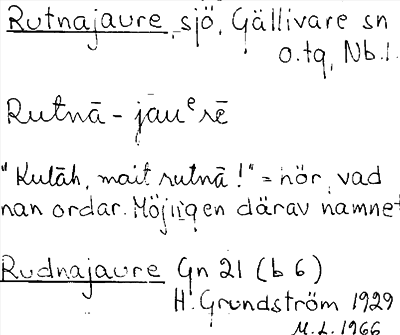 Rutnajaure, sjö, Gällivare sn
o. tg, Nb. l.
Rutnā - jauᵉrē
"Kulāh, mait rutnā!" = hör, vad
nan ordar. Möjligen därav namnet
Rudnajaure Gn 21 (b 6)
H. Grundström 1929
M. L. 1966